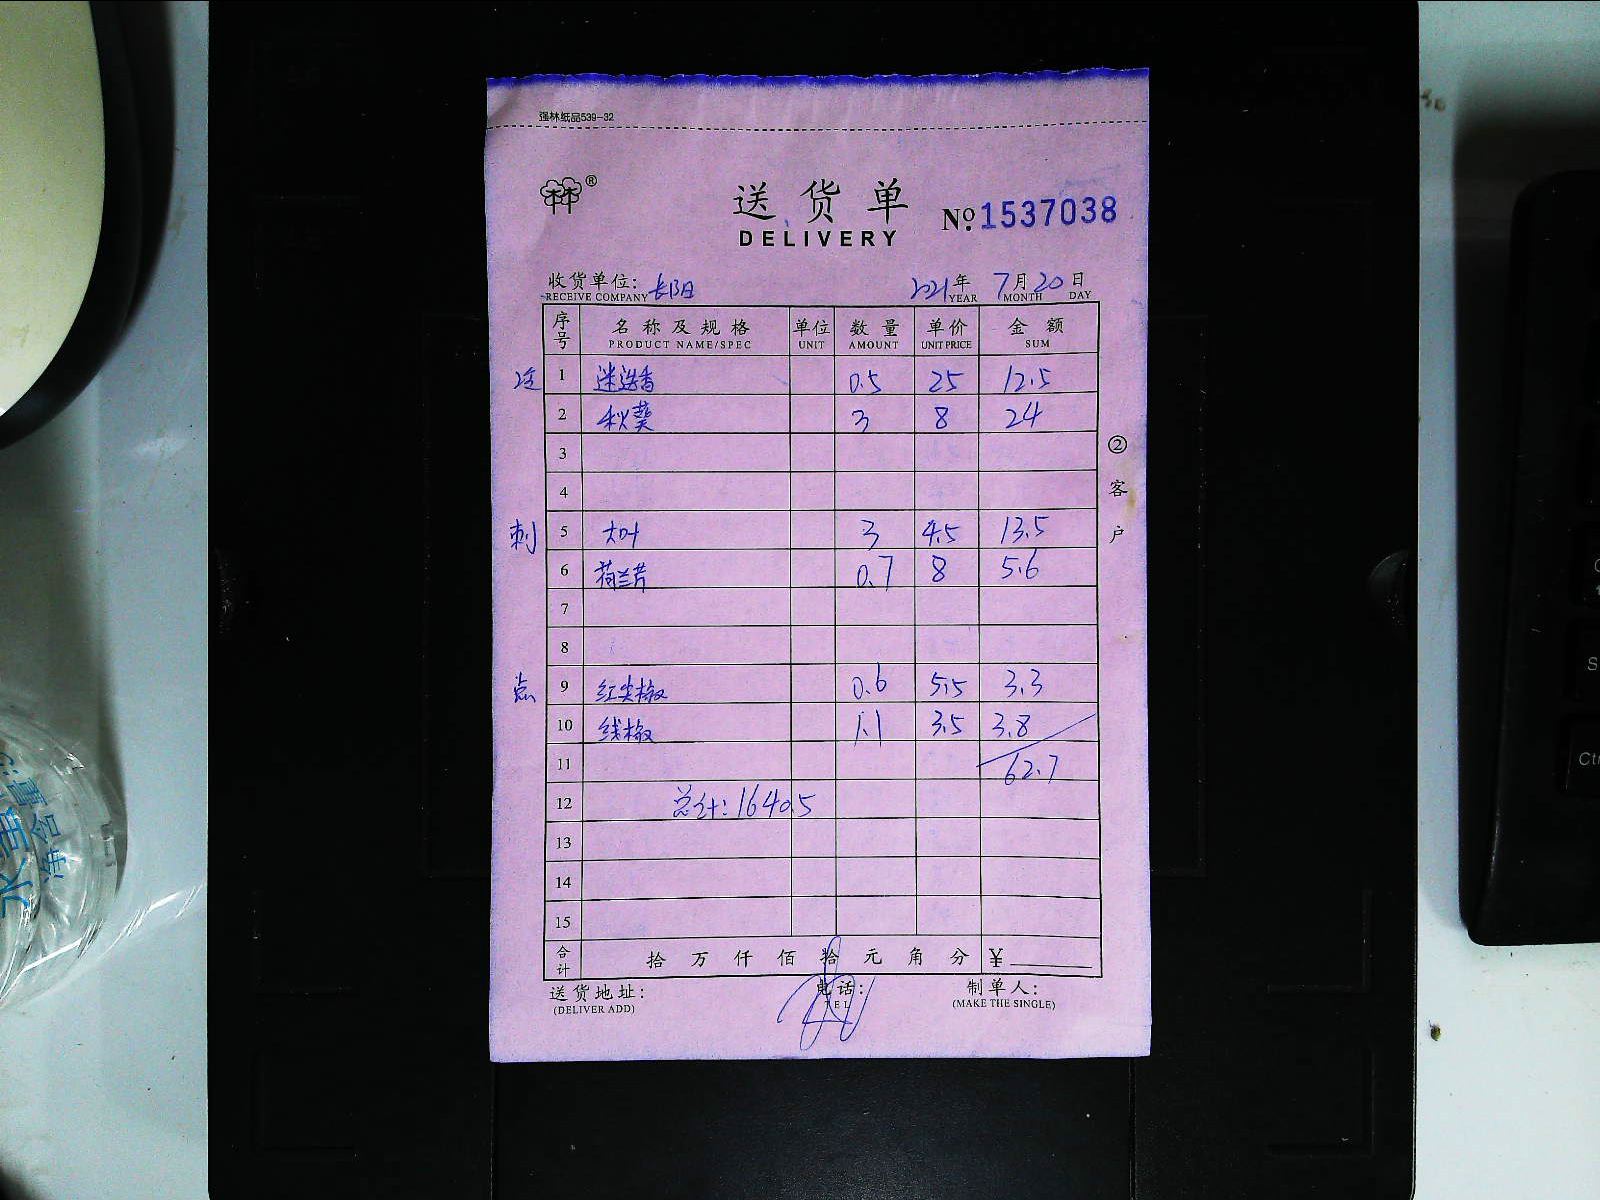 强林纸品539-32
林林®
送货单
DELIVERY
№ 1537038
收货单位: 长阳 2021年 7月20日
RECEIVE COMPANY YEAR MONTH DAY
序号 名称及规格 单位 数量 单价 金额
PRODUCT NAME/SPEC UNIT AMOUNT UNIT PRICE SUM
1 迷迭香 0.5 25 12.5
2 秋葵 3 8 24
3
4
刺 5 大叶 3 4.5 13.5
6 荷兰芹 0.7 8 5.6
7
8
点 9 红尖椒 0.6 5.5 3.3
10 线椒 1.1 3.5 3.8
11 62.7
12 总计:1640.5
13
14
15
合计 拾万仟佰拾元角分 ¥
送货地址: 电话: 制单人:
(DELIVER ADD) TEL (MAKE THE SINGLE)
②客户
水宝
净含量
Ctr